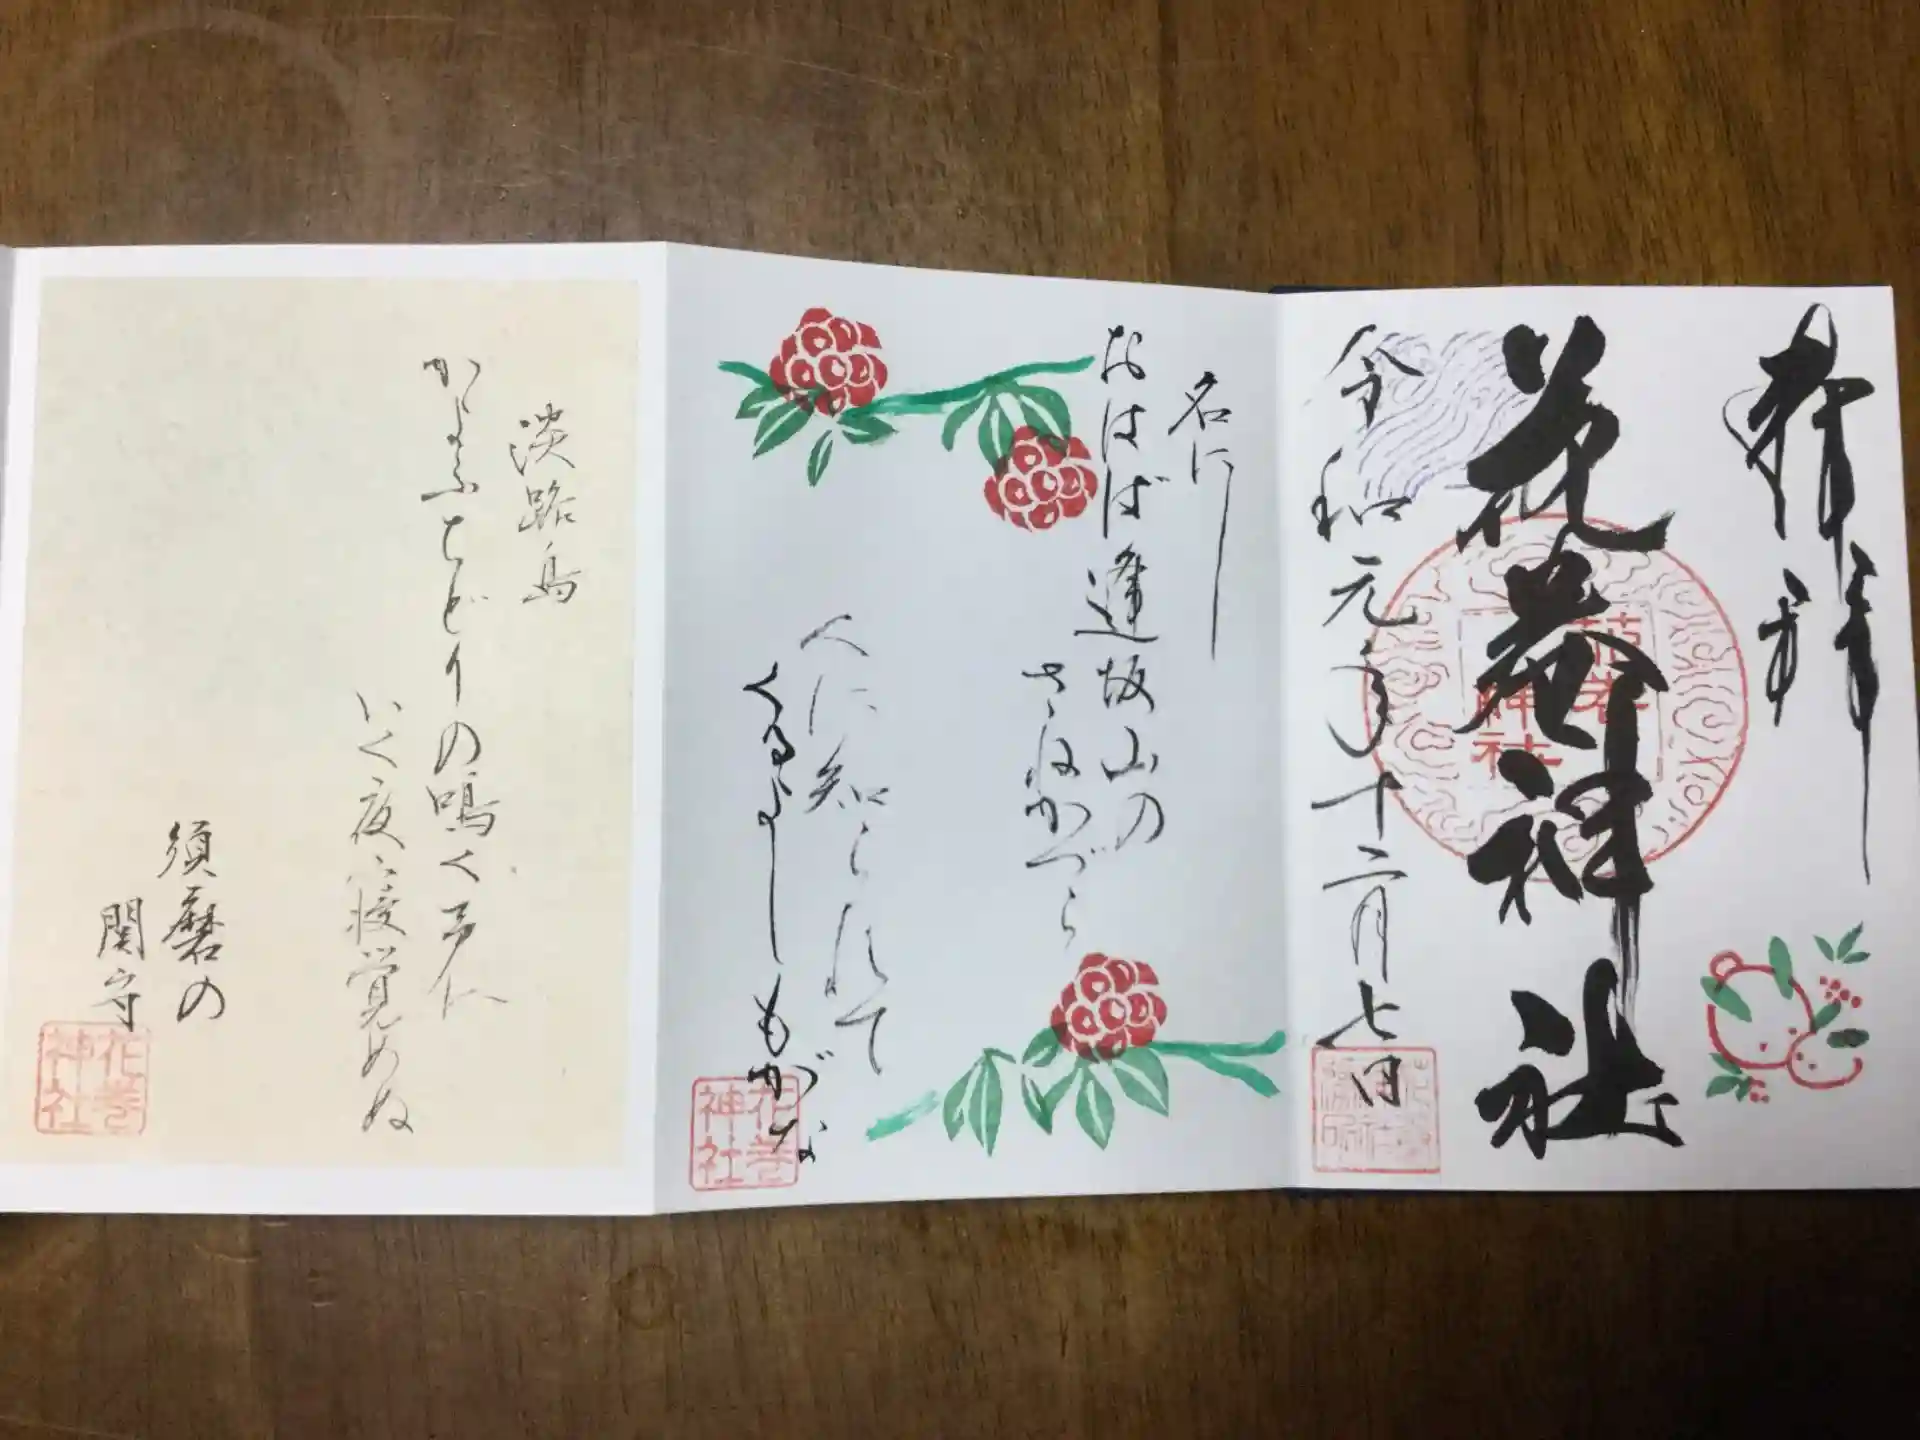 奉拝
花巻神社
花巻
神社
令和元年十二月七日
名にし
おはば逢坂山の
さねかづら
人に知られて
くるよしもがな
花巻
神社
淡路島
かよふちどりの鳴く声に
いく夜寝覚めぬ
須磨の
関守
花巻
神社